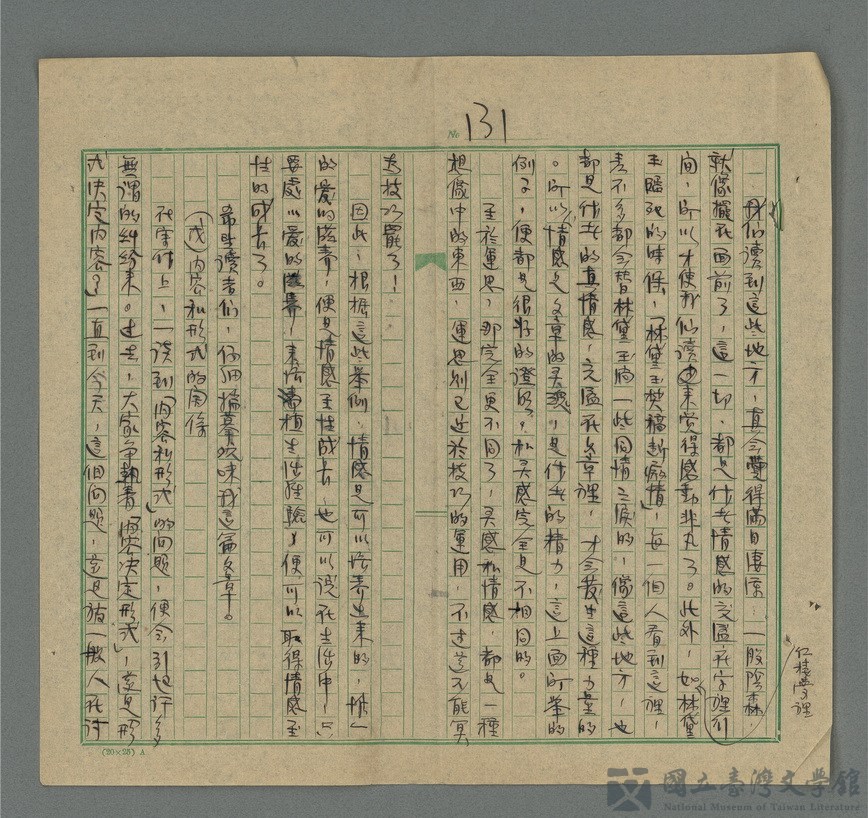 No 131
我們讀到這些地方,真會覺得滿目淒涼,一股陰森,
就像擺在面前了,這一切,都是作者情感的交溢在字裡行
間,所以才使我們讀起來覺得感動非凡了。此外,如林黛
玉臨死的時候,「林黛玉焚稿斷癡情」,每一個人看到這裡,
差不多都會替林黛玉掬一些同情之淚的,像這些地方,也
都是作者的真情感,交溢在文章裡,才會發生這種力量的
。所以情感是文章的灵魂,是作者的精力,這上面所舉的
例子,便都是很好的證明,和灵感完全是不相同的。
至於運思,那完全更不同了,灵感和情感,都是一種
想像中的東西,運思則已近於技巧的運用,不過是只能算
為技巧罷了!
因此,根據這些舉例,情感是可以培養出來的,惟一
的愛的滋養,便是情感至性成長,也可以說在生活中,以
愛的滋養,來培植生活經驗,便可以取得情感至
性的成長了。
希望讀者們,仔細揣摹玩味我這篇文章。
(戊)內容和形式的關係
在寫作上,一談到「內容和形式」的問題,便會引起許多
無謂的糾紛來。過去,大家爭執着「內容决定形式」,還是「形
式决定內容?」一直到今天,這個問題,還是被一般人在討
(20×25) A
國立臺灣文學館
National Museum of Taiwan Literature